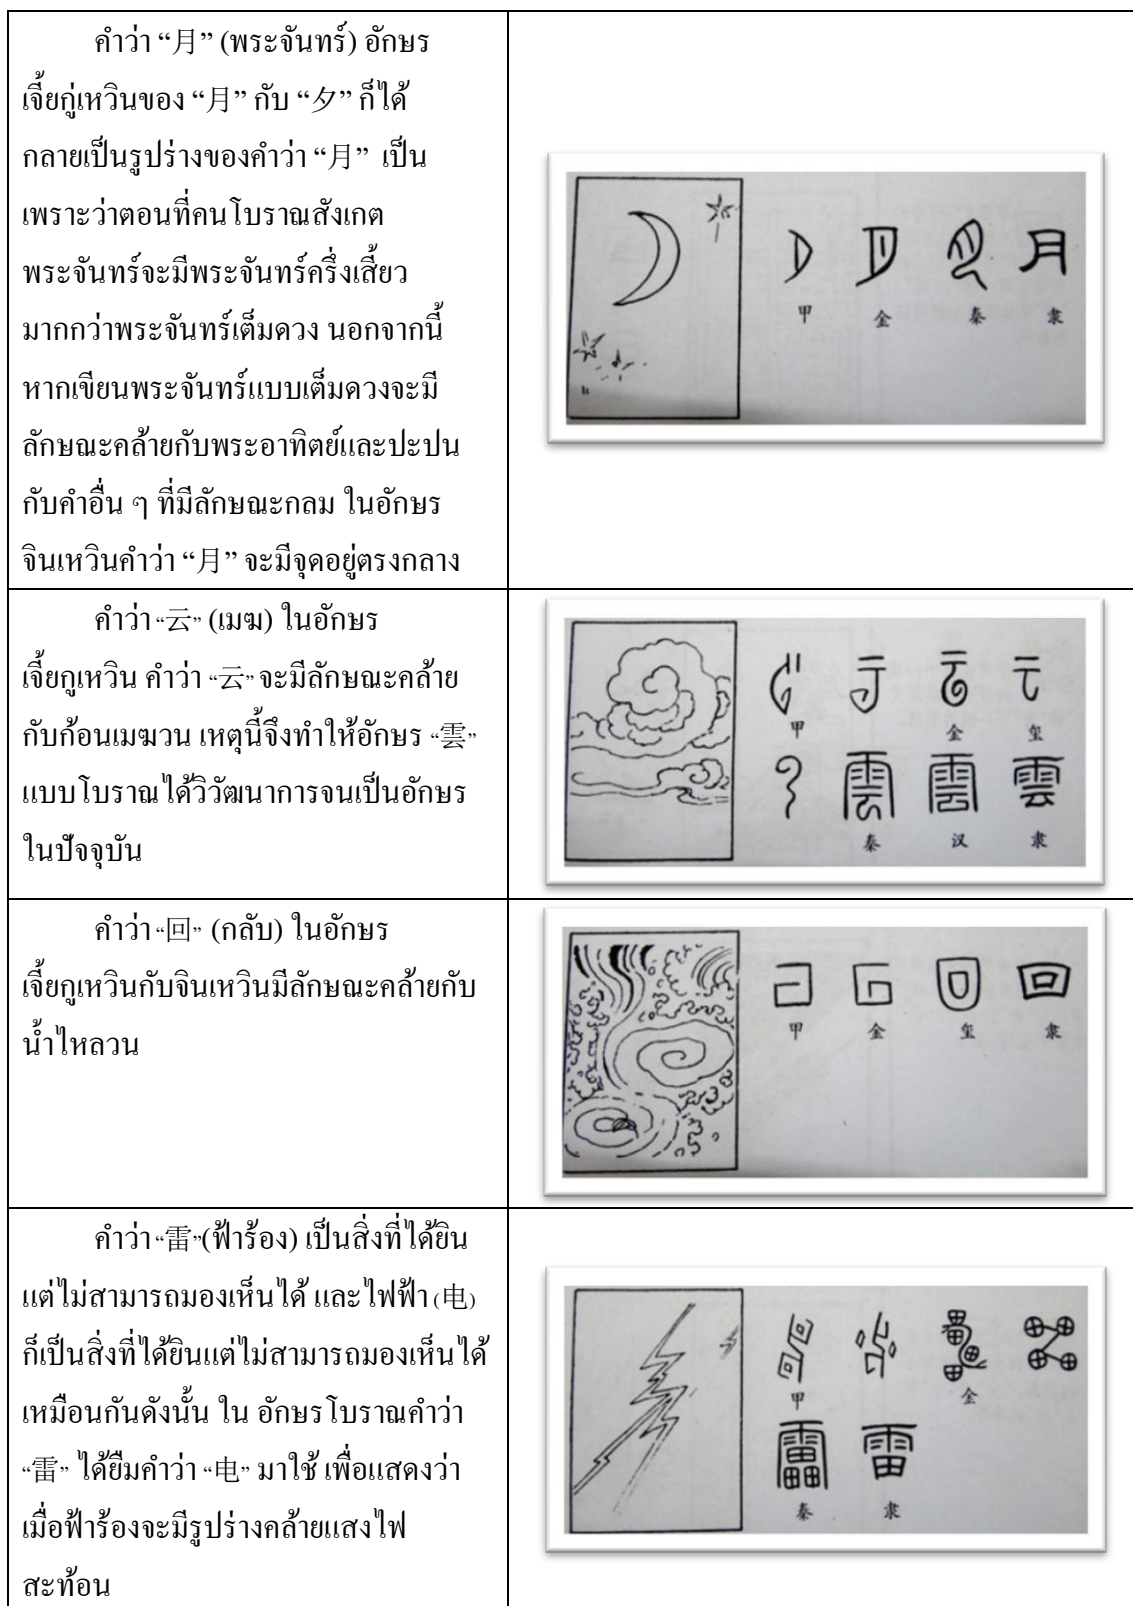 คำว่า “月” (พระจันทร์) อักษร
เจี้ยกู่เหวินของ “月” กับ “夕” ก็ได้
กลายเป็นรูปร่างของคำว่า “月” เป็น
เพราะว่าตอนที่คนโบราณสังเกต
พระจันทร์จะมีพระจันทร์ครึ่งเสี้ยว
มากกว่าพระจันทร์เต็มดวง นอกจากนี้
หากเขียนพระจันทร์แบบเต็มดวงจะมี
ลักษณะคล้ายกับพระอาทิตย์และปะปน
กับคำอื่น ๆ ที่มีลักษณะกลม ในอักษร
จินเหวินคำว่า “月” จะมีจุดอยู่ตรงกลาง
月
甲 金 秦 隶
คำว่า “云” (เมฆ) ในอักษร
เจี้ยกูเหวิน คำว่า “云” จะมีลักษณะคล้าย
กับก้อนเมฆวน เหตุนี้จึงทำให้อักษร “雲”
แบบโบราณได้วิวัฒนาการจนเป็นอักษร
ในปัจจุบัน
甲 金 玺
雲
秦 汉 隶
คำว่า “回” (กลับ) ในอักษร
เจี้ยกูเหวินกับจินเหวินมีลักษณะคล้ายกับ
น้ำไหลวน
回
甲 金 玺 隶
คำว่า “雷”(ฟ้าร้อง) เป็นสิ่งที่ได้ยิน
แต่ไม่สามารถมองเห็นได้ และไฟฟ้า (电)
ก็เป็นสิ่งที่ได้ยินแต่ไม่สามารถมองเห็นได้
เหมือนกันดังนั้น ใน อักษรโบราณคำว่า
“雷” ได้ยืมคำว่า “电” มาใช้ เพื่อแสดงว่า
เมื่อฟ้าร้องจะมีรูปร่างคล้ายแสงไฟ
สะท้อน
甲 金
雷
秦 隶